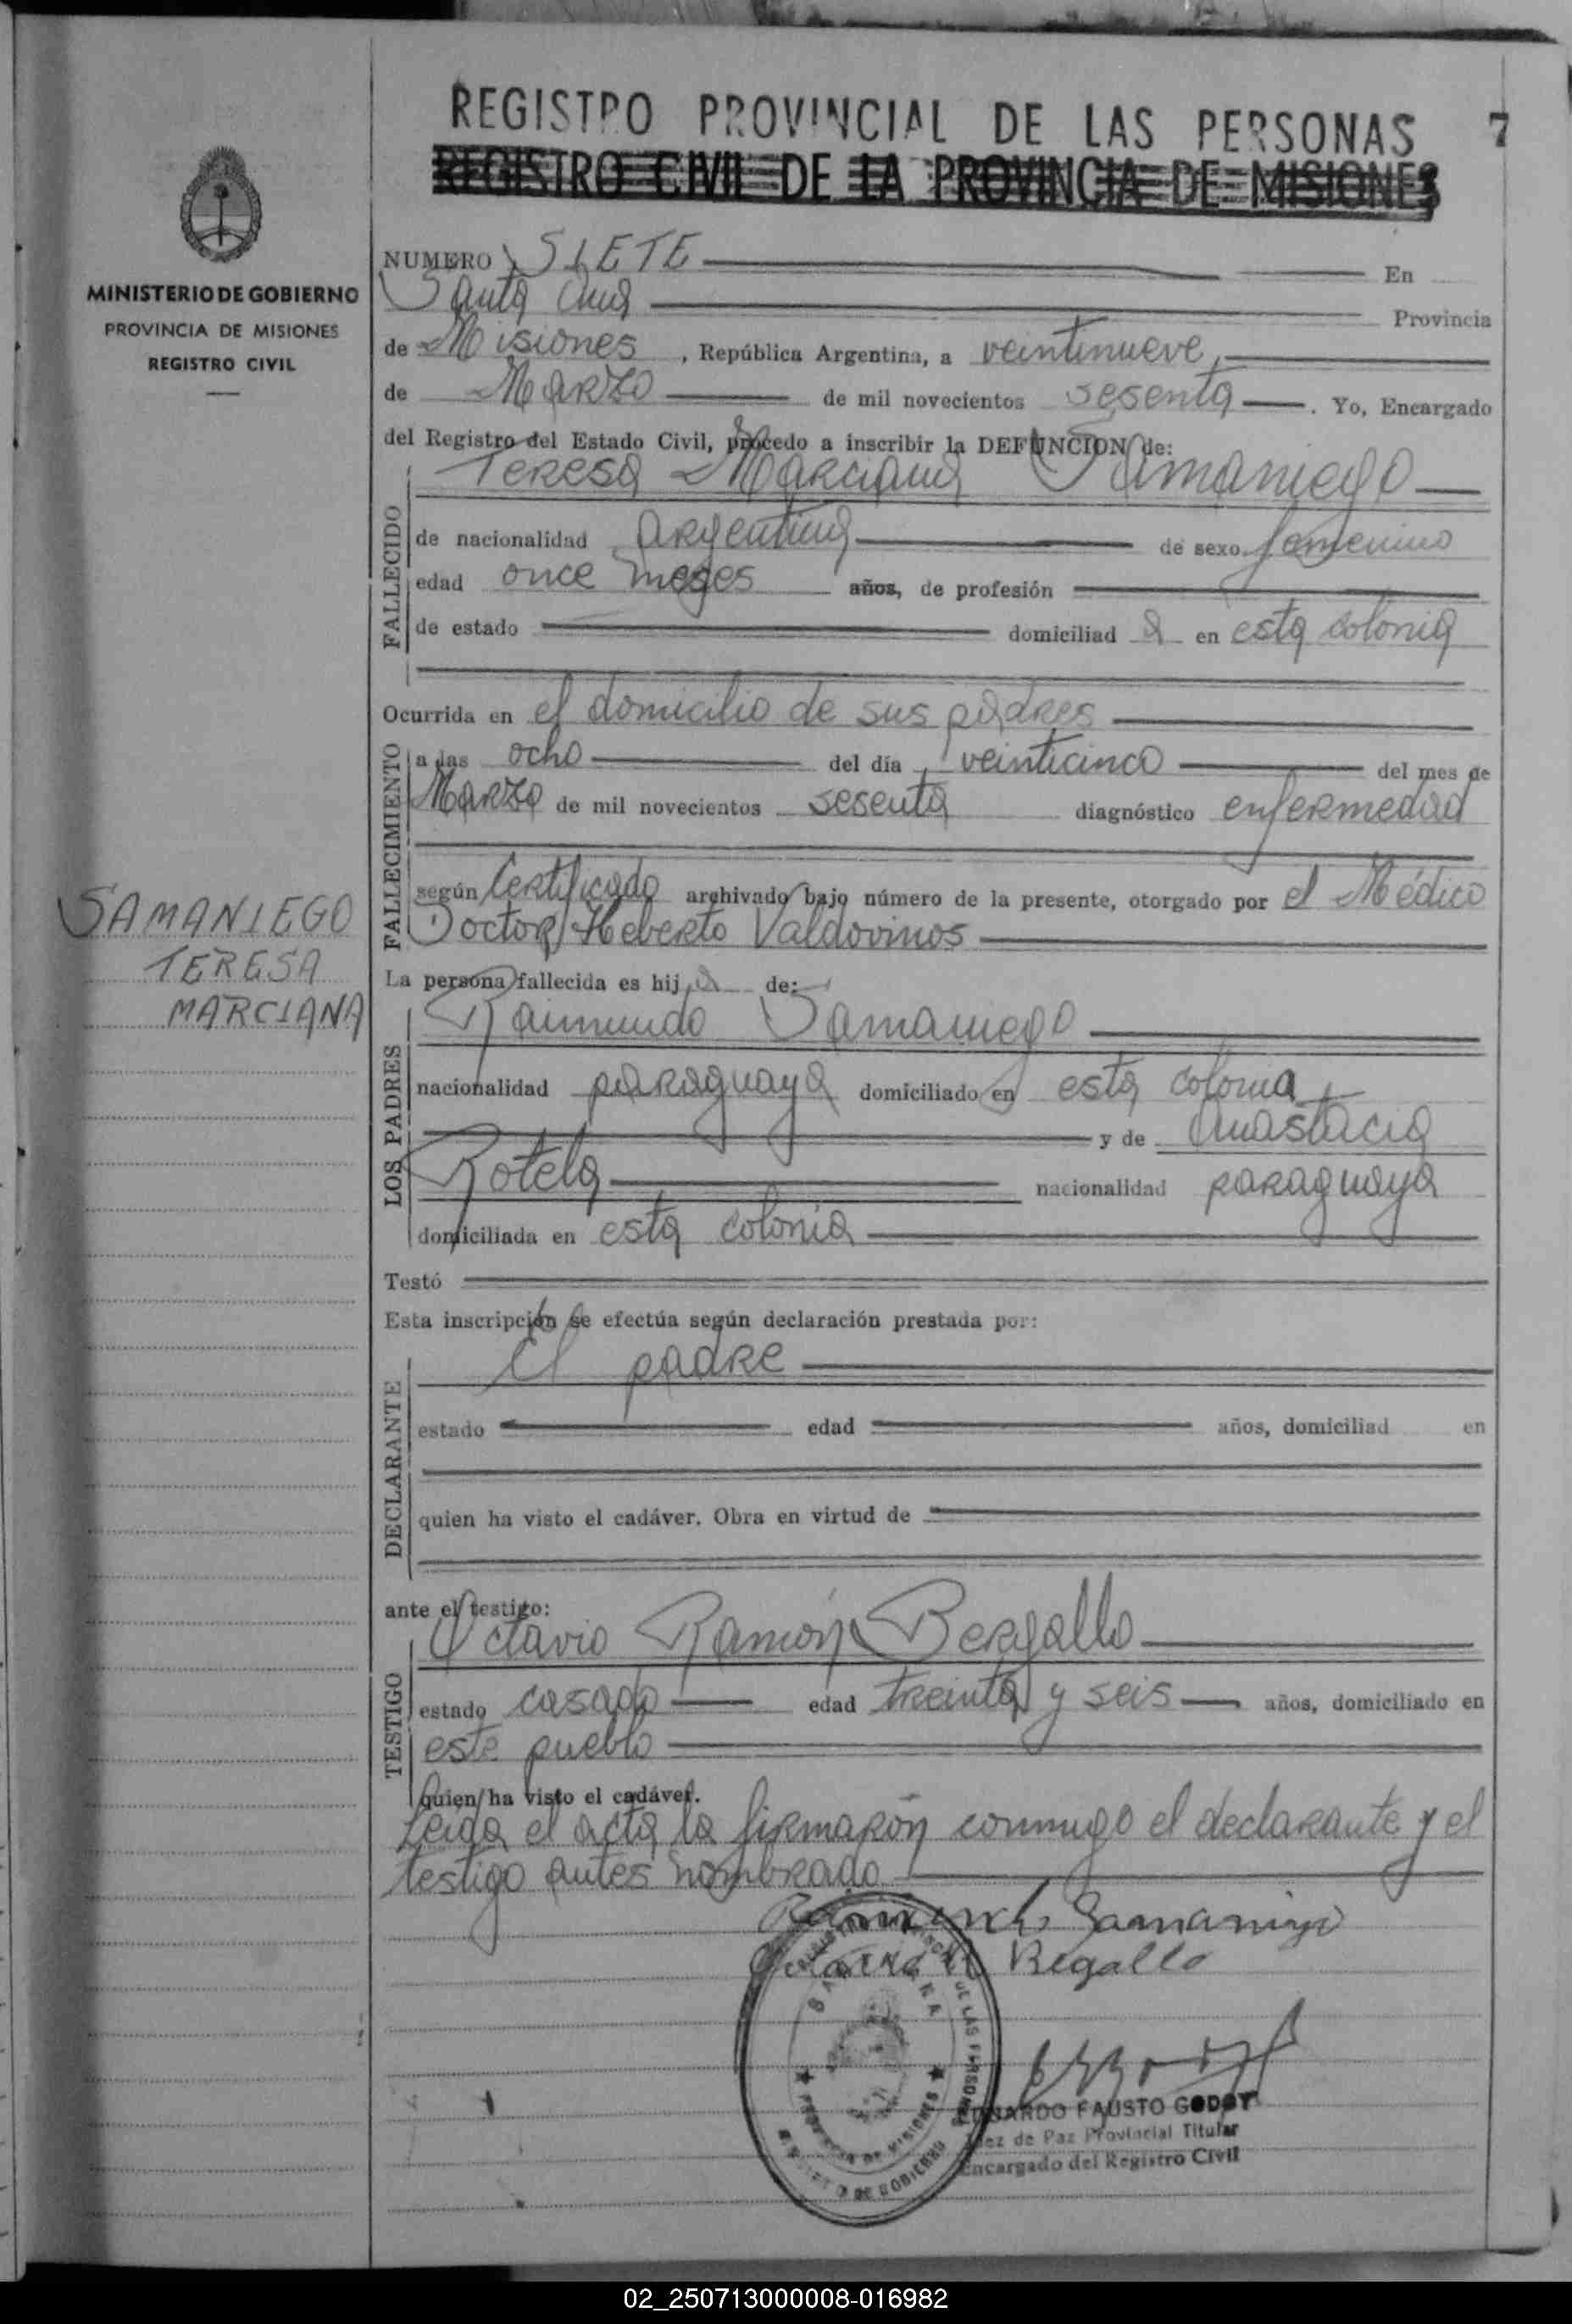 REGISTRO PROVINCIAL DE LAS PERSONAS 7
REGISTRO CIVIL DE LA PROVINCIA DE MISIONES
MINISTERIO DE GOBIERNO
PROVINCIA DE MISIONES
REGISTRO CIVIL
NUMERO SIETE En
Santa Ana Provincia
de Misiones, República Argentina, a veintinueve
de Marzo de mil novecientos sesenta. Yo, Encargado
del Registro del Estado Civil, procedo a inscribir la DEFUNCION de:
Teresa Marciana Samaniego
FALLECIDO
de nacionalidad argentina de sexo femenino
edad once meses años, de profesión
de estado domiciliad a en esta colonia
Ocurrida en el domicilio de sus padres
FALLECIMIENTO
a las ocho del día veinticinco del mes de
Marzo de mil novecientos sesenta diagnóstico enfermedad
según Certificado archivado bajo número de la presente, otorgado por el Médico
Doctor Heberto Valdovinos
SAMANIEGO
TERESA
MARCIANA
La persona fallecida es hij a de:
LOS PADRES
Raimundo Samaniego
nacionalidad paraguaya domiciliado en esta colonia
y de Anastacia
Rotela nacionalidad paraguaya
domiciliada en esta colonia
Testó
Esta inscripción se efectúa según declaración prestada por:
DECLARANTE
el padre
estado edad años, domiciliad en
quien ha visto el cadáver. Obra en virtud de
ante el testigo:
TESTIGO
Octavio Ramón Bergallo
estado casado edad treinta y seis años, domiciliado en
este pueblo
quien ha visto el cadáver.
Leída el acta la firmarón conmigo el declarante y el
testigo antes nombrado
Samaniego
EDUARDO FAUSTO GODOY
Juez de Paz Provincial Titular
Encargado del Registro Civil
02_250713000008-016982